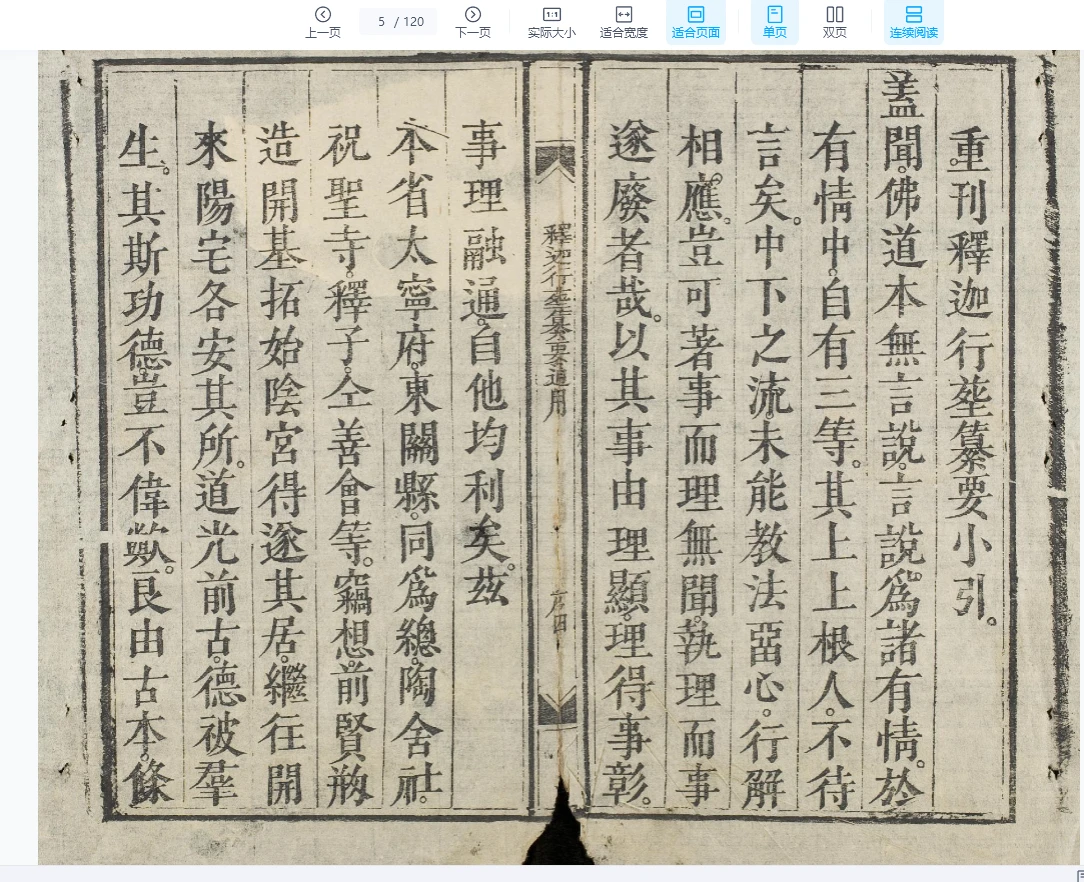 上一页
5 / 120
下一页
1:1
实际大小
适合宽度
适合页面
单页
双页
连续阅读
重刊釋迦行塟纂要小引。
盖聞。佛道本無言說。言說爲諸有情。於
有情中。自有三等。其上上根人。不待
言矣。中下之流。未能教法心。行解
相應。豈可著事而理無聞。執理而事
遂廢者哉。以其事由理顯。理得事彰。
釋迦行塟纂要道用 序四
事理融通。自他均利矣。茲
本省太寧府。東關縣。同爲總。陶舍社。
祝聖寺。釋子。仝善會等。竊想前賢剏
造開基拓始陰宮得遂其居。繼往開
來陽宅各安其所。道光前古。德被羣
生。其斯功德。豈不偉歟。良由古本。條